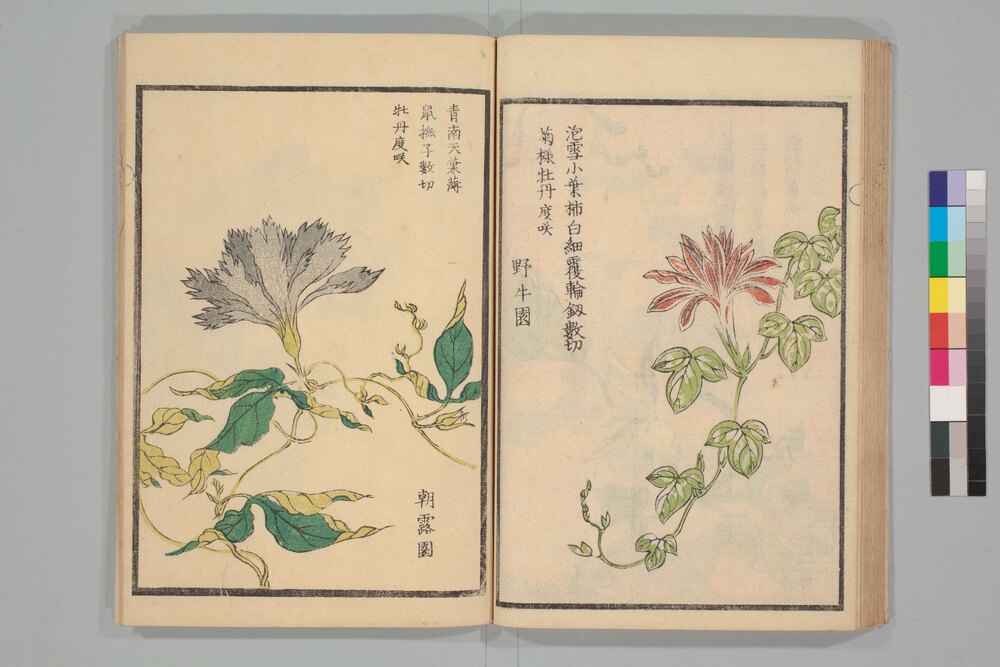 泡雪小葉柿白細覆輪釼數切
菊様牡丹度咲
野牛園
青南天葉薄
鼠撫子數切
牡丹度咲
朝露園